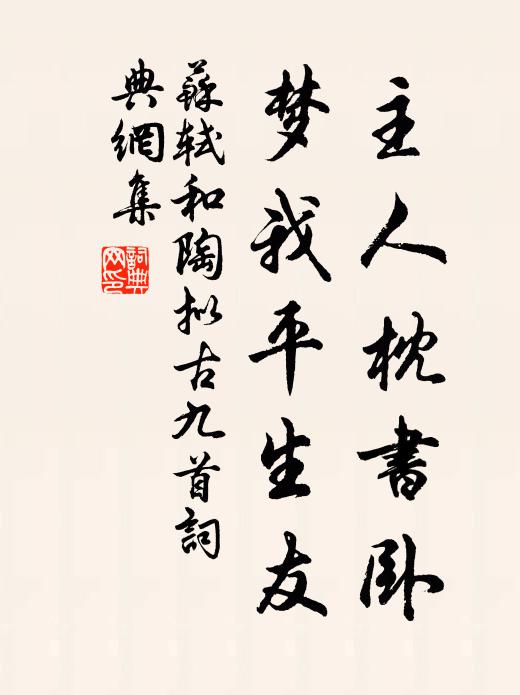 主人枕書卧
梦我平生友
蘇軾和陶拟古九首詞
典網集
詞典网印